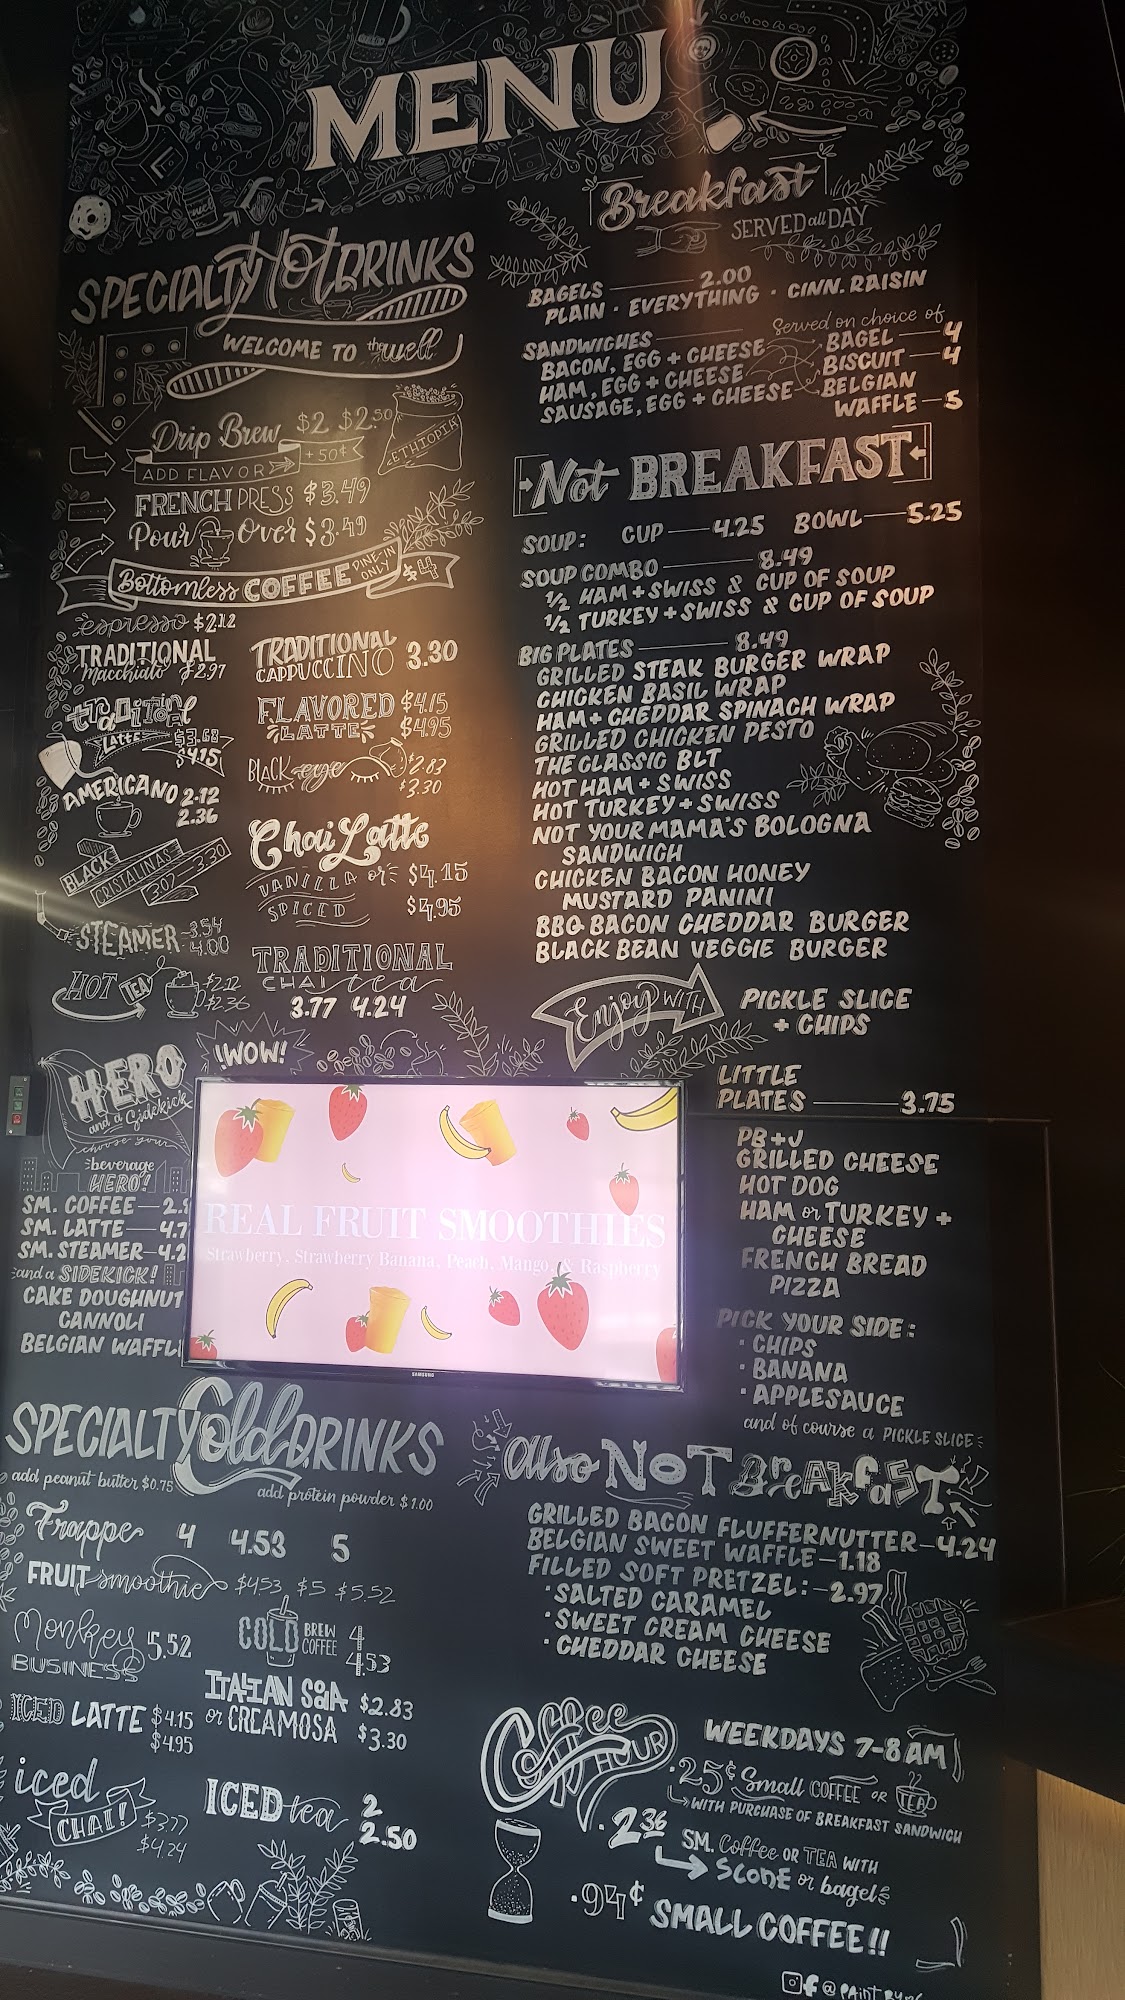 MENU
SPECIALTY Hot DRINKS
WELCOME TO the well
Drip Brew $2 $2.50
ADD FLAVOR +50¢
ETHIOPIA
FRENCH PRESS $3.49
Pour Over $3.49
Bottomless COFFEE DINE-IN ONLY $4
espresso $2.12
TRADITIONAL Macchiato $2.97
TRADITIONAL CAPPUCCINO 3.30
traditional LATTE $3.68 $4.15
FLAVORED LATTE $4.15 $4.95
BLACK eye $2.83 $3.30
AMERICANO 2.12 2.36
Chai Latte
VANILLA or SPICED $4.15 $4.95
BLACK CRISTALINAS 3.02 3.30
STEAMER 3.54 4.00
HOT TEA $2.12 $2.36
TRADITIONAL CHAI tea
3.77 4.24
!WOW!
HERO and a Sidekick
choose your beverage HERO!
SM. COFFEE — 2.
SM. LATTE — 4.7
SM. STEAMER — 4.2
and a SIDEKICK!
CAKE DOUGHNUT
CANNOLI
BELGIAN WAFFL
REAL FRUIT SMOOTHIES
Strawberry, Strawberry Banana, Peach, Mango, & Raspberry
SAMSUNG
SPECIALTY Cold DRINKS
add peanut butter $0.75
add protein powder $1.00
Frappe 4 4.53 5
FRUIT smoothie $4.53 $5 $5.52
Monkey BUSINESS 5.52
COLD BREW COFFEE 4 4.53
ICED LATTE $4.15 $4.95
ITALIAN SODA or CREAMOSA $2.83 $3.30
iced CHAI! $3.77 $4.24
ICED tea 2 2.50
Breakfast
SERVED all DAY
BAGELS — 2.00
PLAIN · EVERYTHING · CINN. RAISIN
SANDWICHES — Served on choice of
BACON, EGG + CHEESE
HAM, EGG + CHEESE
SAUSAGE, EGG + CHEESE
BAGEL — 4
BISCUIT — 4
BELGIAN
WAFFLE — 5
Not BREAKFAST
SOUP: CUP — 4.25 BOWL — 5.25
SOUP COMBO — 8.49
1/2 HAM + SWISS & CUP OF SOUP
1/2 TURKEY + SWISS & CUP OF SOUP
BIG PLATES — 8.49
GRILLED STEAK BURGER WRAP
CHICKEN BASIL WRAP
HAM + CHEDDAR SPINACH WRAP
GRILLED CHICKEN PESTO
THE CLASSIC BLT
HOT HAM + SWISS
HOT TURKEY + SWISS
NOT YOUR MAMA'S BOLOGNA
SANDWICH
CHICKEN BACON HONEY
MUSTARD PANINI
BBQ BACON CHEDDAR BURGER
BLACK BEAN VEGGIE BURGER
Enjoy WITH PICKLE SLICE
+ CHIPS
LITTLE
PLATES — 3.75
PB + J
GRILLED CHEESE
HOT DOG
HAM or TURKEY +
CHEESE
FRENCH BREAD
PIZZA
PICK YOUR SIDE:
· CHIPS
· BANANA
· APPLESAUCE
and of course a PICKLE SLICE
also NOT BREAKFAST
GRILLED BACON FLUFFERNUTTER — 4.24
BELGIAN SWEET WAFFLE — 1.18
FILLED SOFT PRETZEL: — 2.97
· SALTED CARAMEL
· SWEET CREAM CHEESE
· CHEDDAR CHEESE
Coffee HOUR
WEEKDAYS 7-8 AM
· 25¢ Small COFFEE OR TEA
WITH PURCHASE OF BREAKFAST SANDWICH
· 2.36 SM. Coffee OR TEA WITH
SCONE or bagel
· 94¢ SMALL COFFEE!!